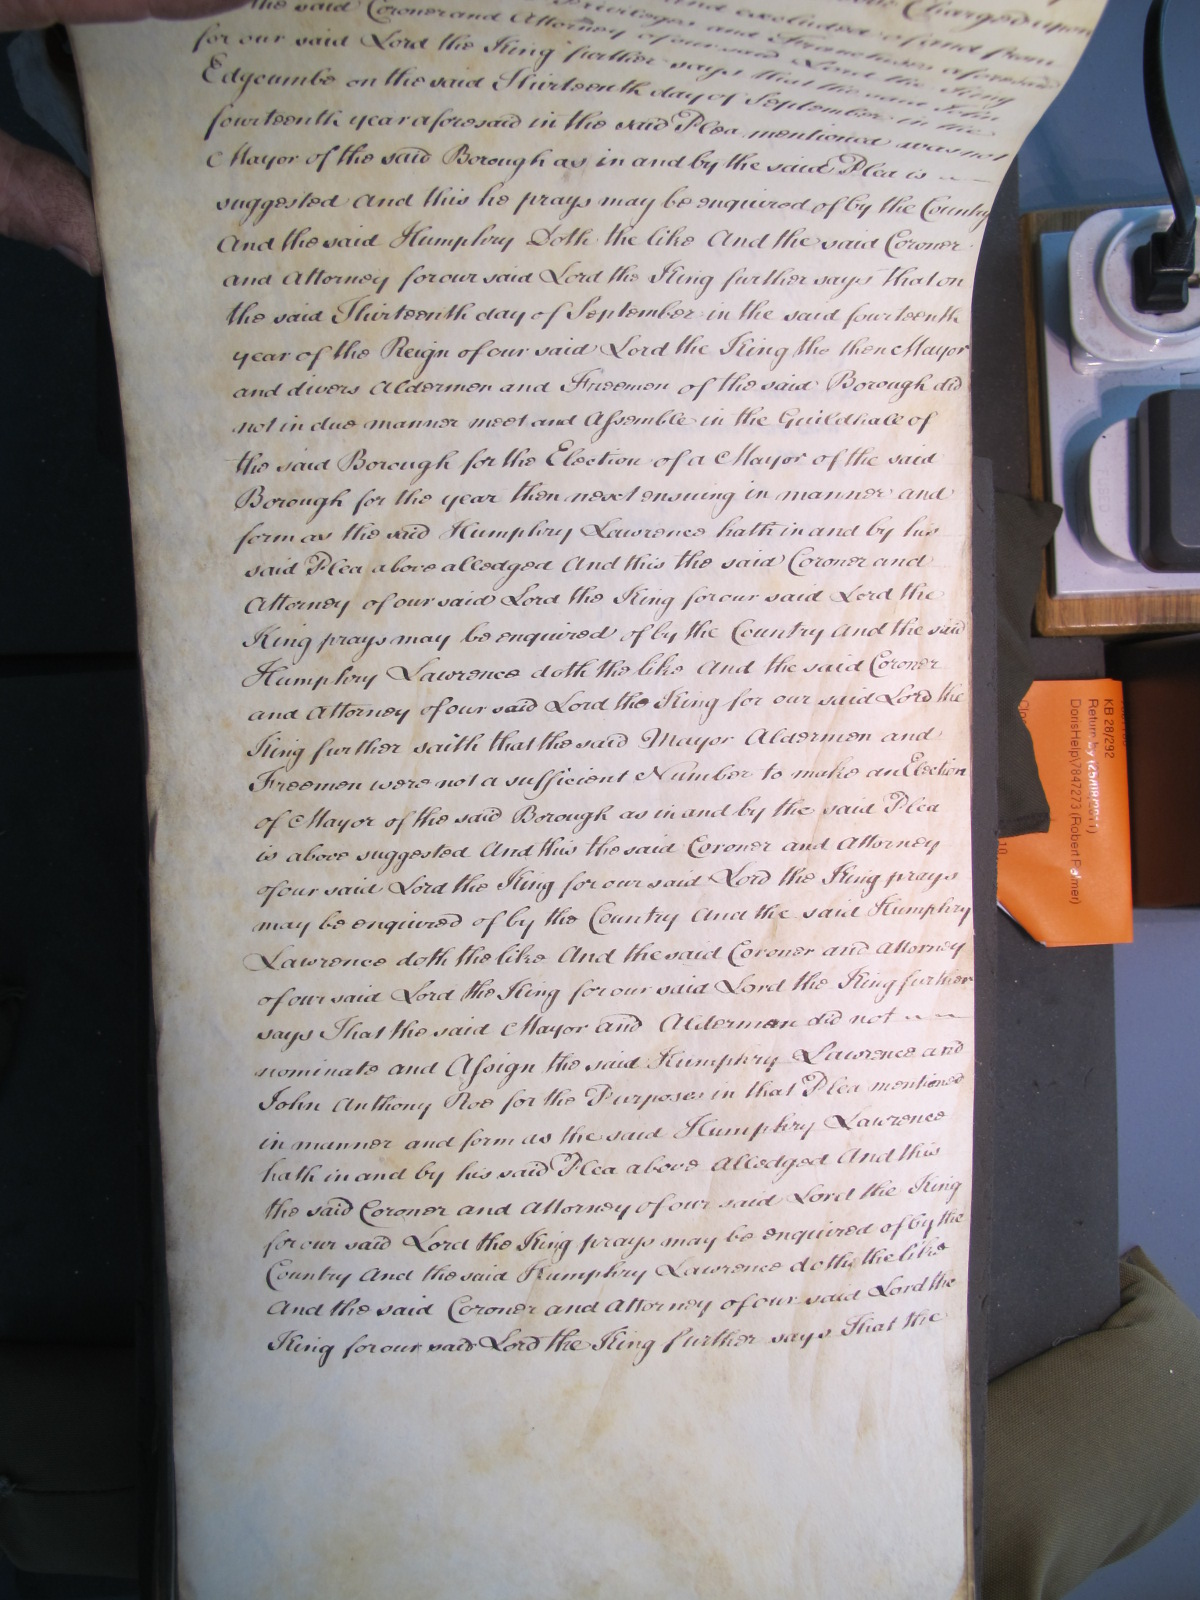 Charged upon
and excluded of and from
Priviledges and Franchises aforesaid
the said Coroner and Attorney of our said Lord the King
for our said Lord the King further says that the said John
Edgcumbe on the said Thirteenth day of September in the
fourteenth year aforesaid in the said Plea mentioned was not
Mayor of the said Borough as in and by the said Plea is
suggested And this he prays may be enquired of by the Country
And the said Humphry Doth the like And the said Coroner
and Attorney for our said Lord the King further says that on
the said Thirteenth day of September in the said fourteenth
year of the Reign of our said Lord the King the then Mayor
and divers Aldermen and Freemen of the said Borough did
not in due manner meet and Assemble in the Guildhall of
the said Borough for the Election of a Mayor of the said
Borough for the year then next ensuing in manner and
form as the said Humphry Lawrence hath in and by his
said Plea above alledged And this the said Coroner and
Attorney of our said Lord the King for our said Lord the
King prays may be enquired of by the Country And the said
Humphry Lawrence doth the like And the said Coroner
and Attorney of our said Lord the King for our said Lord the
King further saith that the said Mayor Aldermen and
Freemen were not a sufficient Number to make an Election
of Mayor of the said Borough as in and by the said Plea
is above suggested And this the said Coroner and Attorney
of our said Lord the King for our said Lord the King prays
may be enquired of by the Country And the said Humphry
Lawrence doth the like And the said Coroner and Attorney
of our said Lord the King for our said Lord the King further
says That the said Mayor and Aldermen did not
nominate and Assign the said Humphry Lawrence and
John Anthony Roe for the Purposes in that Plea mentioned
in manner and form as the said Humphry Lawrence
hath in and by his said Plea above Alledged And this
the said Coroner and Attorney of our said Lord the King
for our said Lord the King prays may be enquired of by the
Country And the said Humphry Lawrence doth the like
And the said Coroner and Attorney of our said Lord the
King for our said Lord the King further says That the
KB 28/292
Return by (25/08/2011)
DorisHelp\7847273 (Robert Palmer)